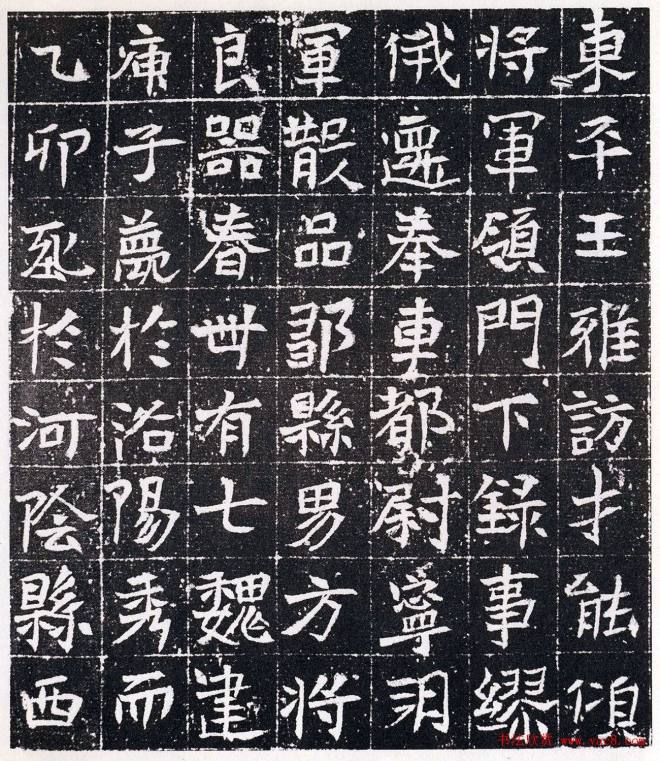 東平王雅訪才能
将軍領門下録事繆
俄遷奉車都尉寧羽
軍散品鄒縣男方将
良器春丗有七魏建
庚子薨於洛陽秀而
乙卯於河陰縣西